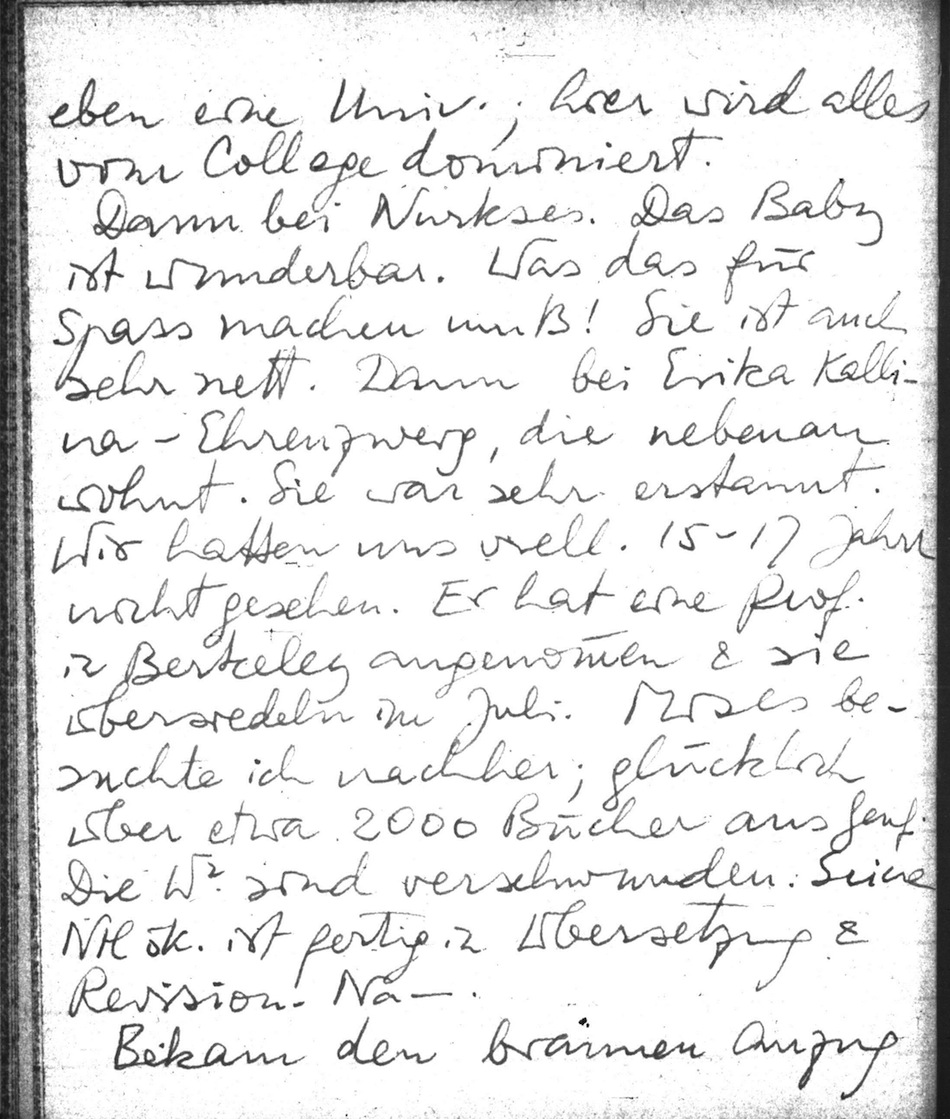 eben eine Univ.; hier wird alles
vom College dominiert.
Dann bei Nurkses. Das Baby
ist wunderbar. Was das für
Spass machen muß! Sie ist auch
sehr nett. Dann bei Erika Kalli-
na-Ehrenzweig, die nebenan
wohnt. Sie war sehr erstaunt.
Wir hatten uns viell. 15-17 Jahre
nicht gesehen. Er hat eine Prof.
in Berkeley angenom̄en & sie
übersiedeln im Juli. Mises be-
suchte ich nachher; glücklich
über etwa 2000 Bücher aus Genf.
Die W². sind verschwunden. Seine
NÖk. ist fertig in Übersetzung &
Revision. Na—.
Bekam den braunen Anzug